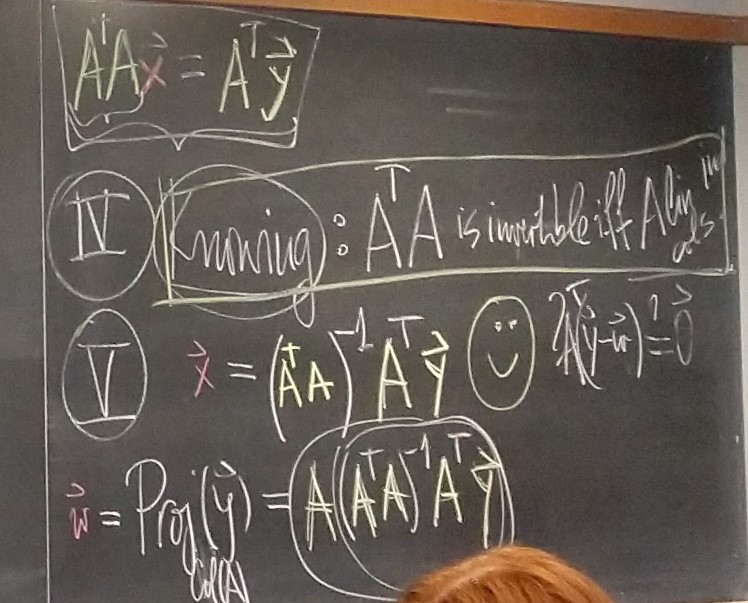 AᵀAx⃗ = Aᵀy⃗
IV Knowing : AᵀA is invertible iff A lin ind cols.
V x⃗ = (AᵀA)⁻¹Aᵀy⃗ ?Aᵀ(y⃗-w⃗) ?= 0⃗
w⃗ = Proj(y⃗) = A(AᵀA)⁻¹Aᵀy⃗
Col(A)